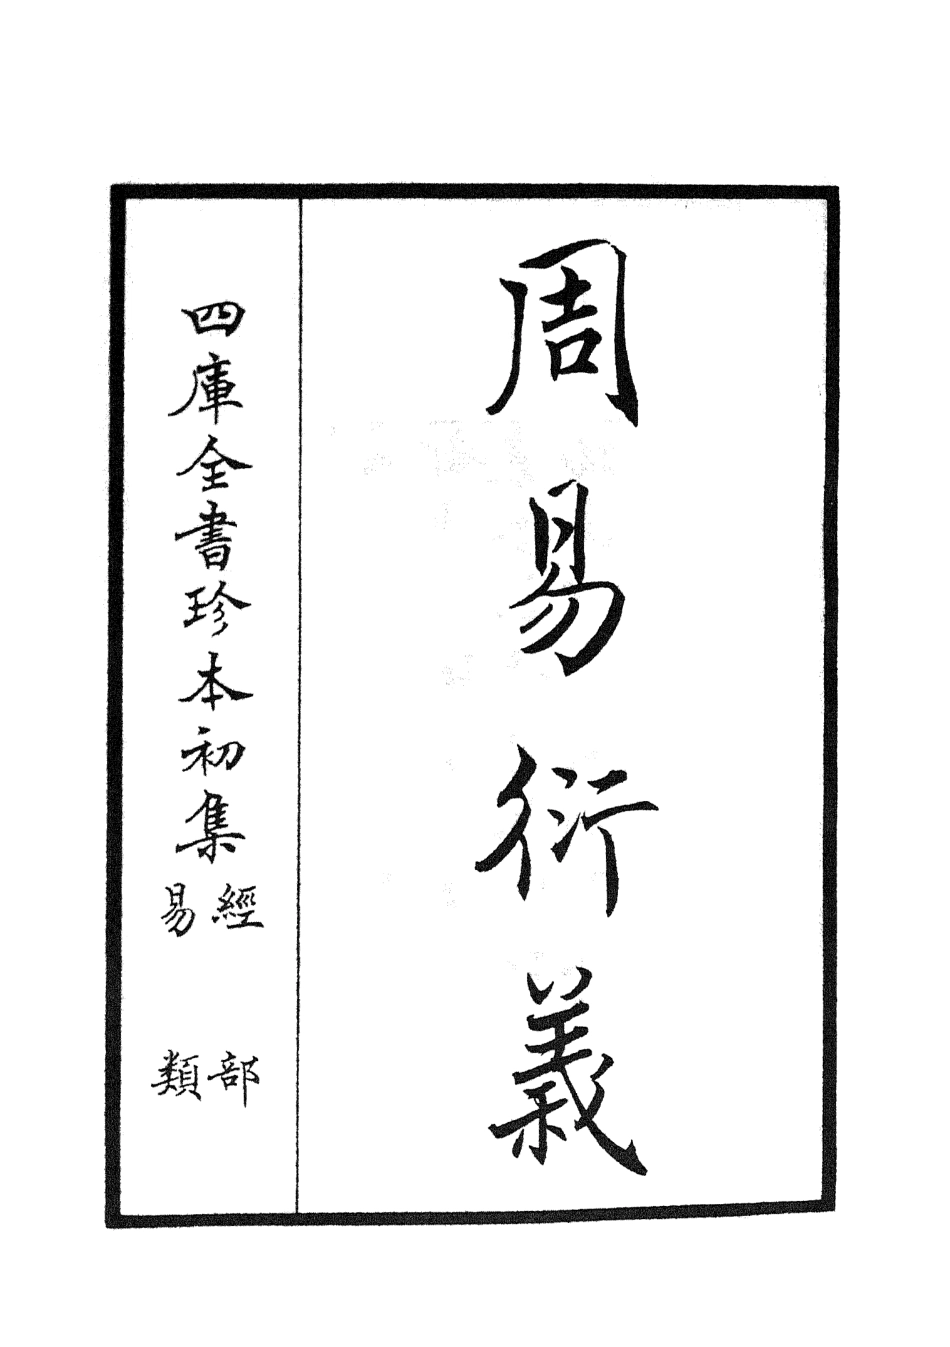 周易衍義
四庫全書珍本初集
經部
易類